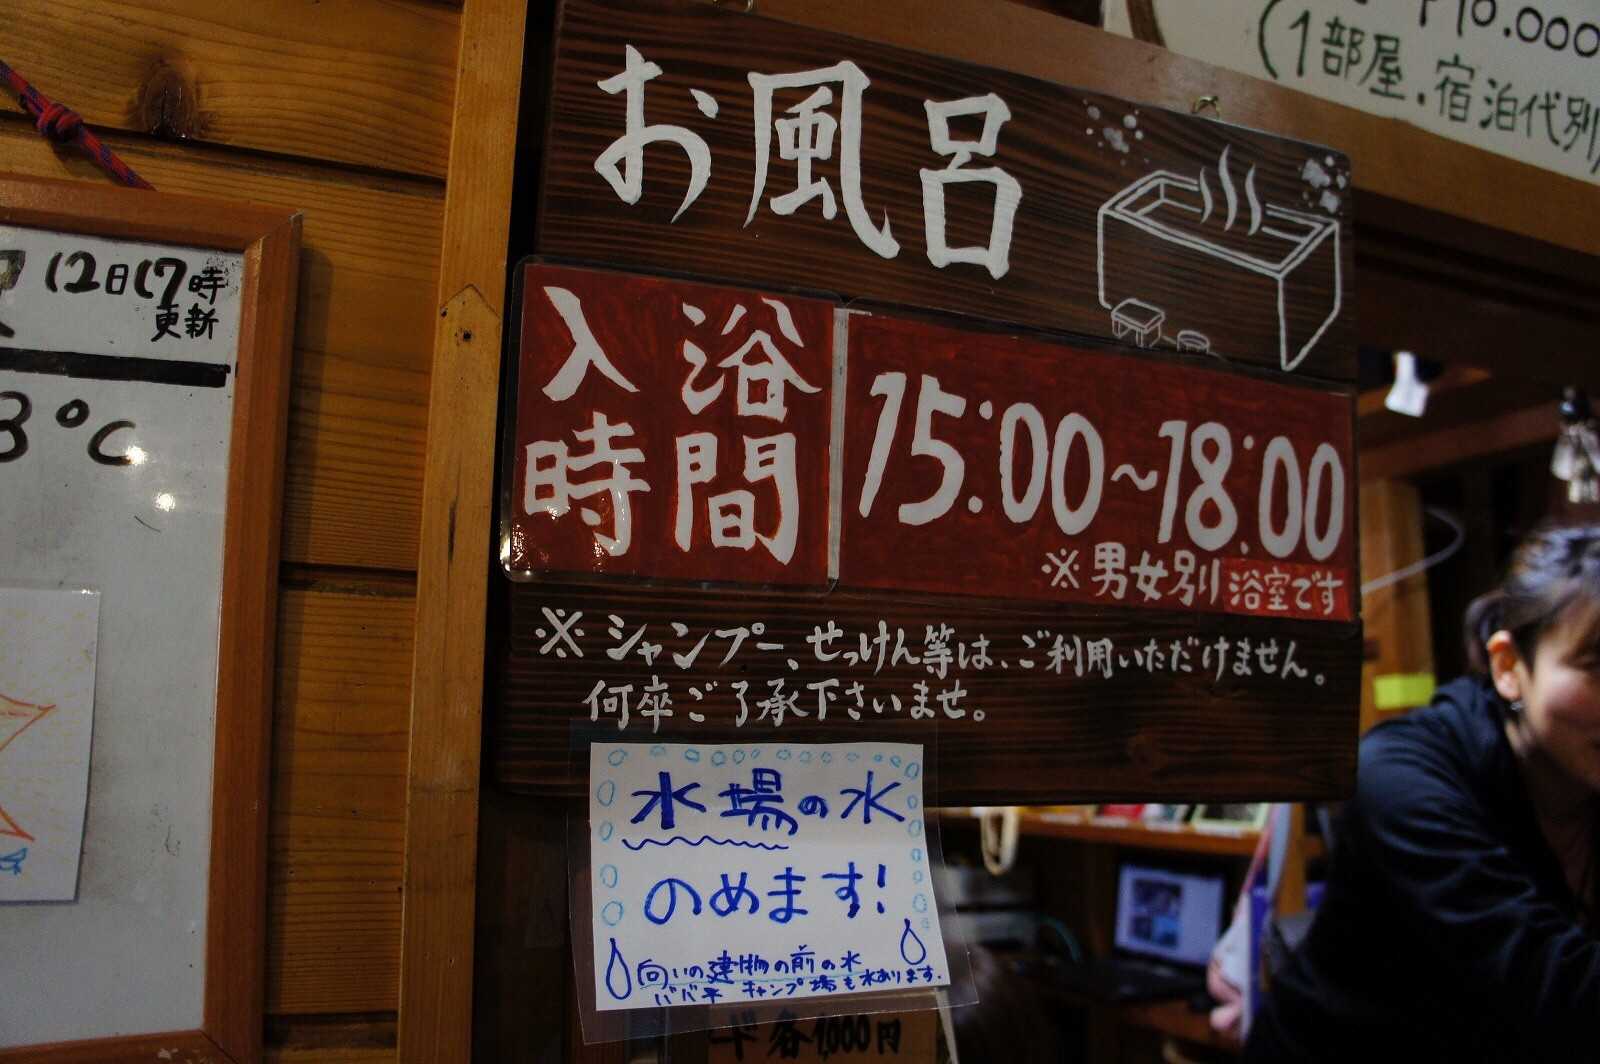 お風呂
入浴
時間
15:00〜18:00
※男女別浴室です
※シャンプー、せっけん等は、ご利用いただけません。
何卒ご了承下さいませ。
水場の水
のめます!
向いの建物の前の水
ババ平 キャンプ場も水あります.
各1,000円
12日17時
更新
8°C
¥10.000
(1部屋.宿泊代別)